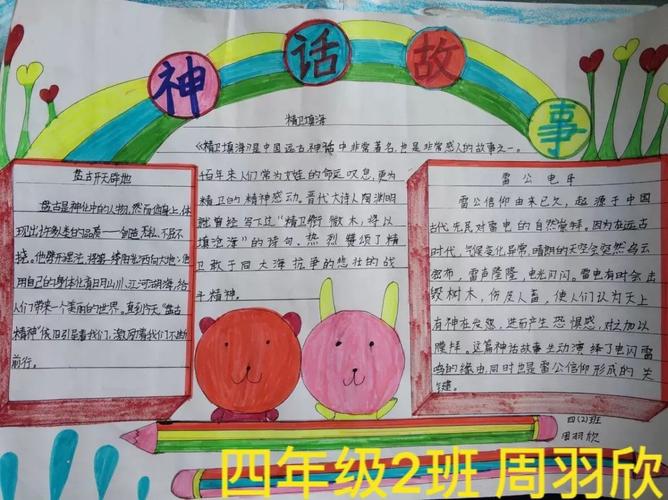 神话故事
精卫填海
《精卫填海》是中国远古神话中非常著名,也是非常感人的故事之一。
后年来人们常为女娃的命运叹息,更为
精卫的精神感动。晋代大诗人陶渊明
就曾经写下过"精卫衔微木,将以
填沧海"的诗句,热烈赞颂了精
卫敢于同大海抗争的悲壮的战
斗精神。
盘古开天辟地
盘古是神化中的人物,然而他身上,体
现出许多人类的品质——创造、无私、不屈不
挠。他劈开混沌,将第一缕阳光洒向大地;他
用自己的身体化着日月山川、江河湖海,给
人们带来一个美丽的世界。直到今天,"盘古
精神"依旧引导着我们,激励着我们不断
前行。
雷公电母
雷公信仰由来已久,起源于中国
古代先民对雷电的自然崇拜。因为在远古
时代,气候变化异常,晴朗的天空会突然乌云
密布,雷声隆隆,电光闪闪。雷电有时会击
毁树木,伤及人畜,使人们认为天上
有神在发怒,进而产生恐惧感,对之加以
膜拜。这篇神话故事生动演绎了电闪雷
鸣的缘由,同时也是雷公信仰形成的关
键。
四(2)班
周羽欣
四年级2班 周羽欣